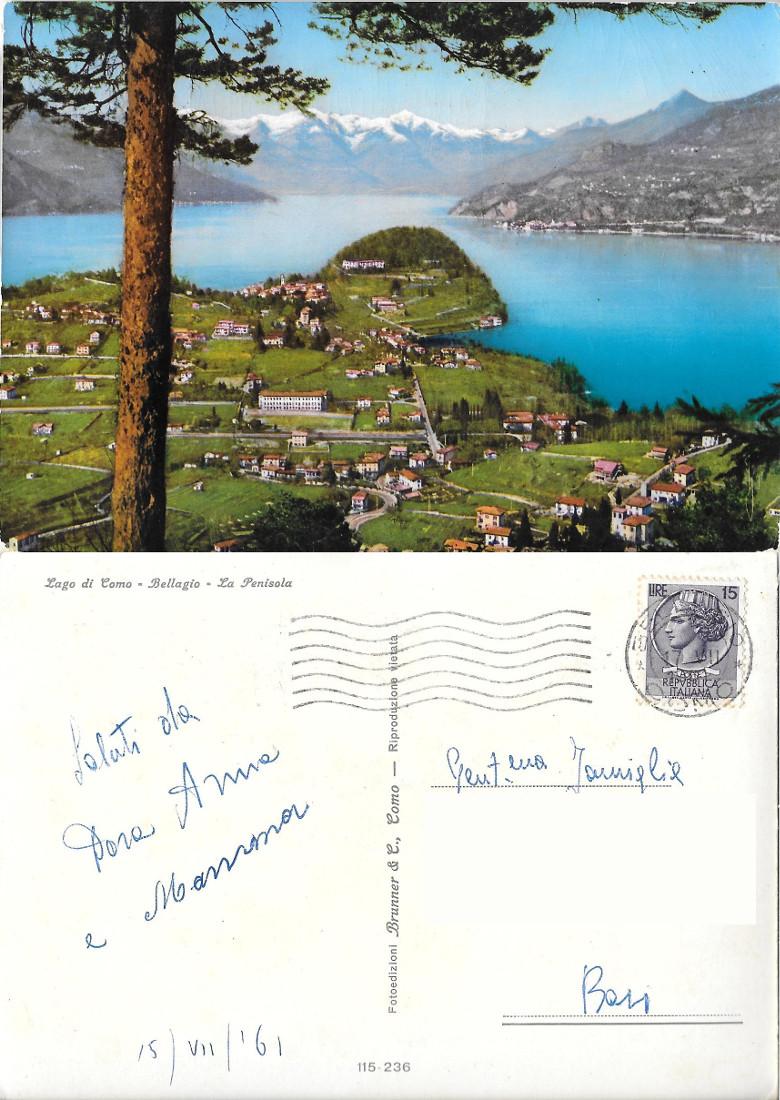 Lago di Como - Bellagio - La Penisola
LIRE 15
REPVBBLICA
ITALIANA
Saluti da
Dora Anna
e Marisa
Gent.ma Famiglia
Bari
15/VII/'61
Fotoedizioni Brunner & C., Como — Riproduzione vietata
115-236